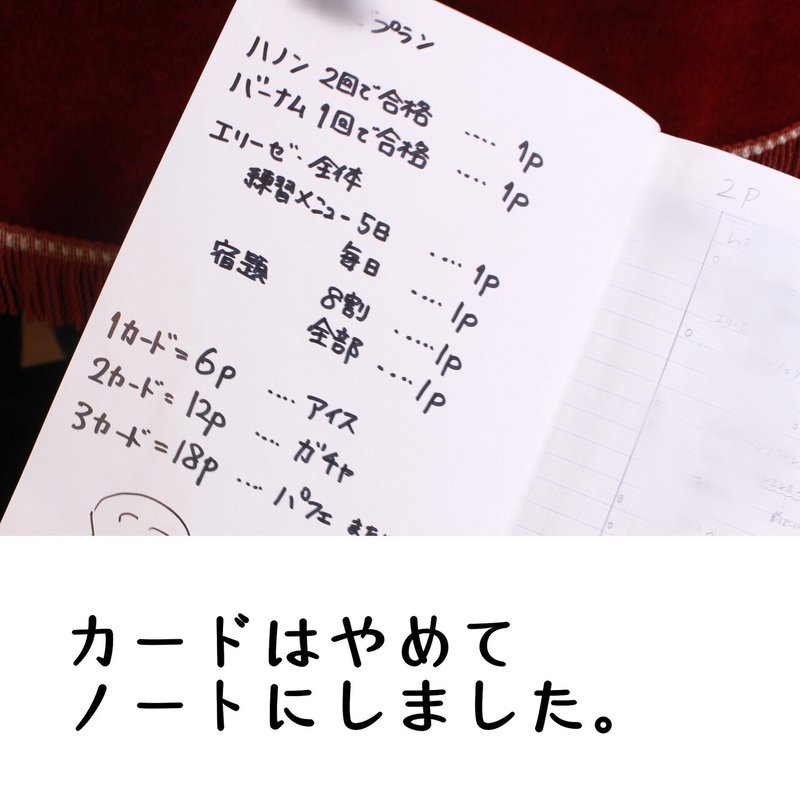 プラン
ハノン 2回で合格 .... 1p
バーナム 1回で合格 .... 1p
エリーゼ・全体
練習メニュー 5日 .... 1p
毎日 .... 1p
宿題 8割 ..... 1p
全部 .... 1p
1カード = 6p .... アイス
2カード = 12p .... ガチャ
3カード = 18p .... パフェ
2P
レッスン
エリーゼ
カードはやめて
ノートにしました。